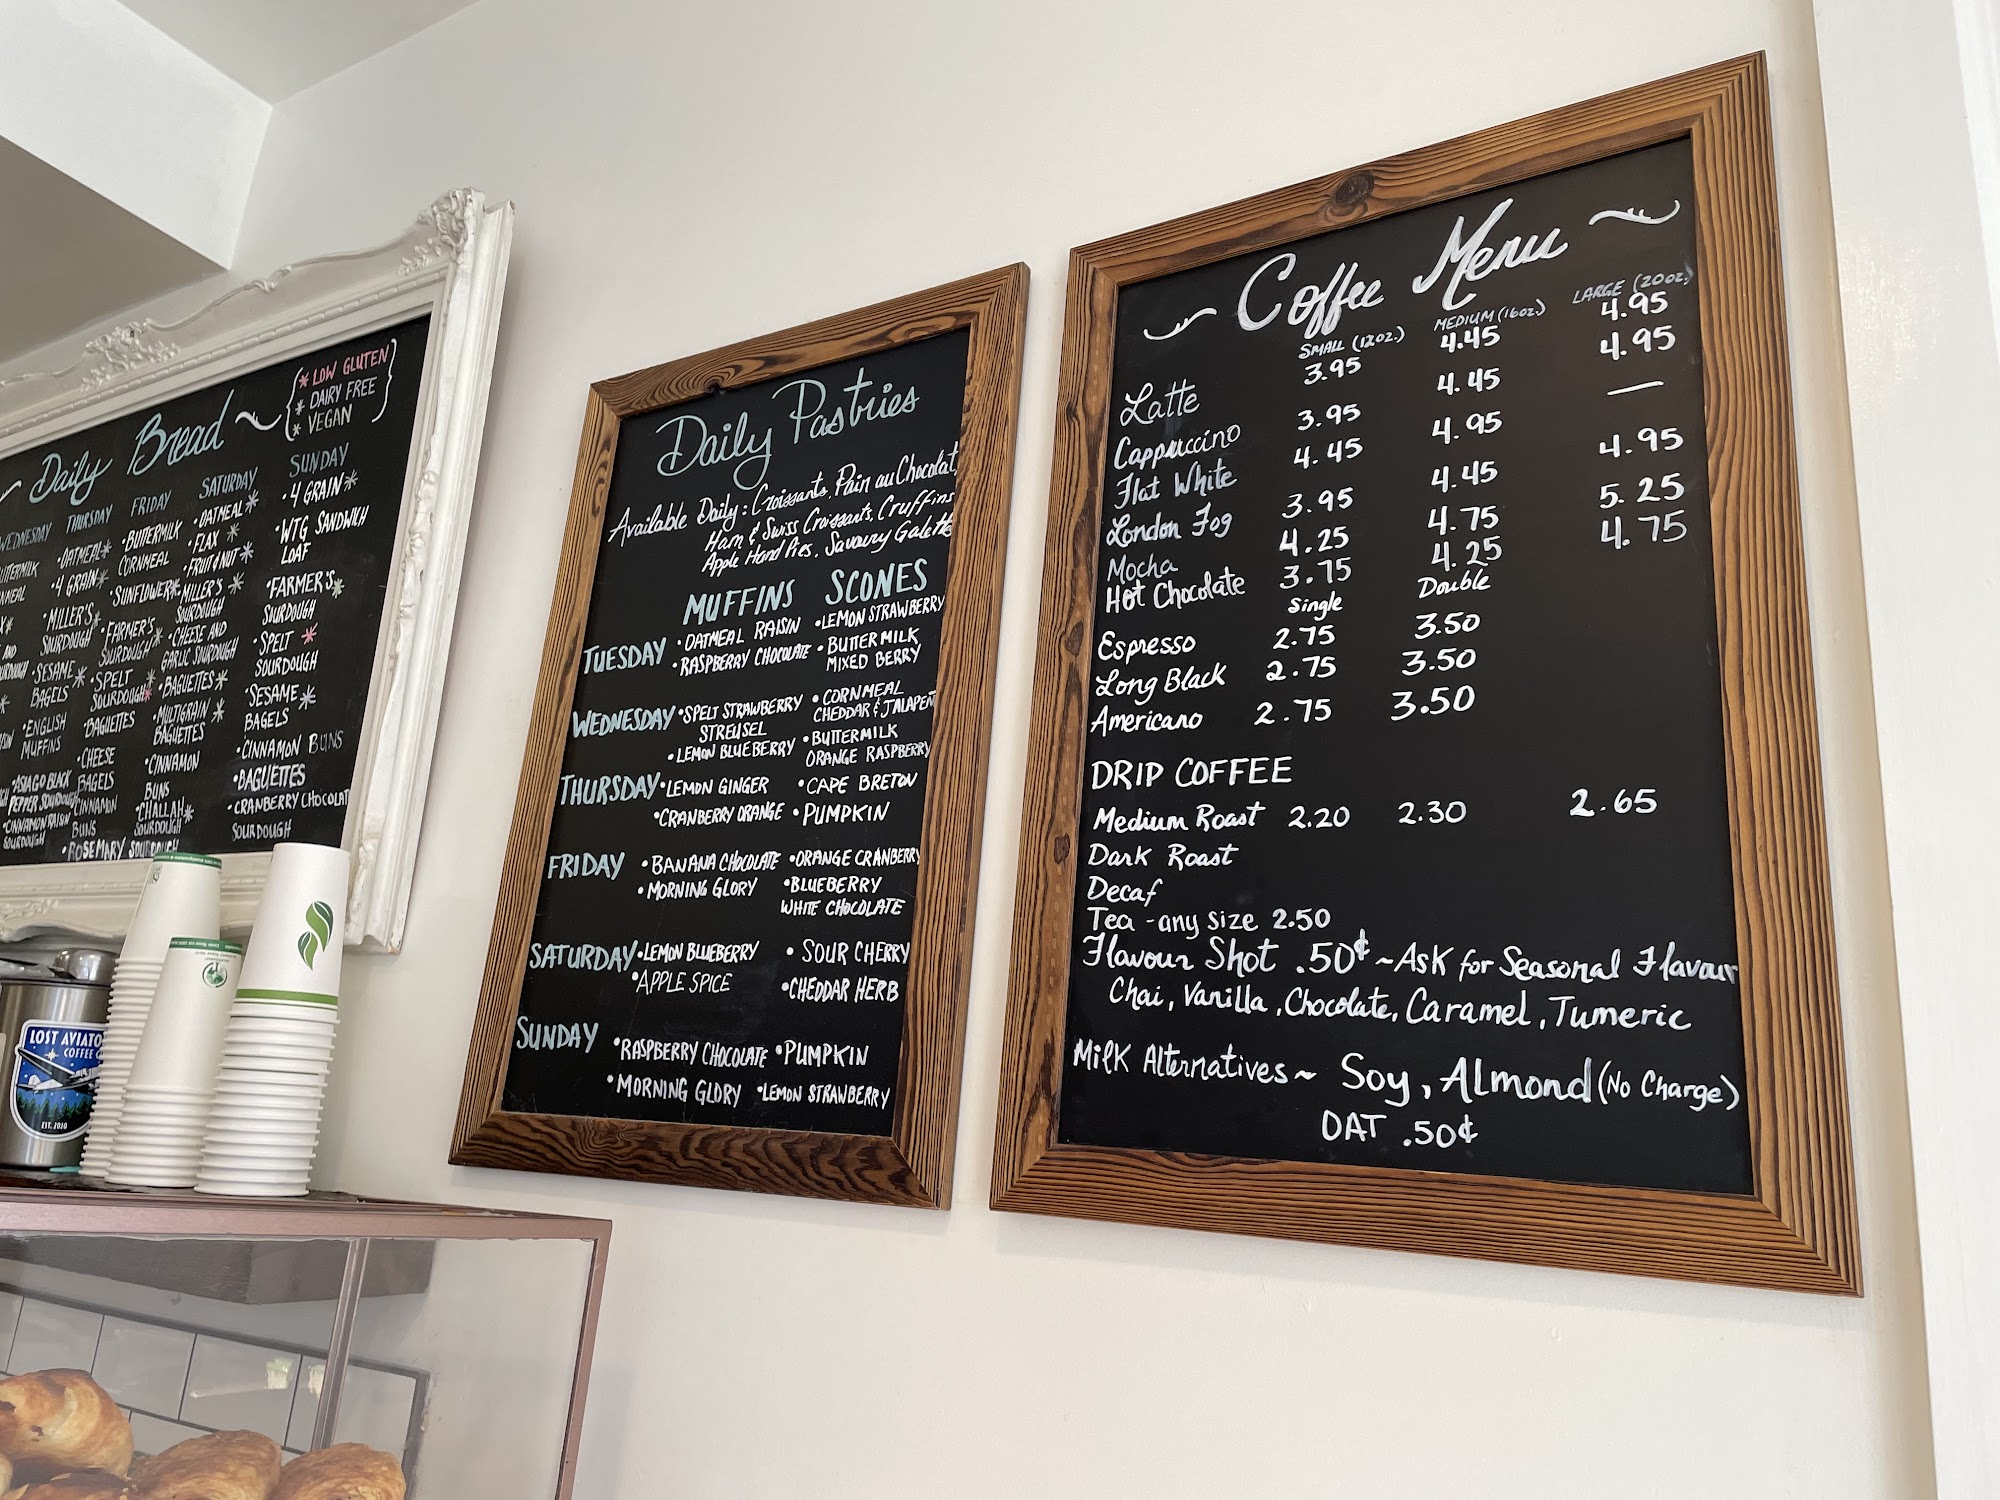 Daily Bread
* LOW GLUTEN
* DAIRY FREE
* VEGAN
WEDNESDAY THURSDAY FRIDAY SATURDAY SUNDAY
THURSDAY
• OATMEAL*
• 4 GRAIN*
• MILLER'S*
SOURDOUGH
• SESAME*
BAGELS
• ENGLISH
MUFFINS
• ASIAGO BLACK
PEPPER SOURDOUGH
• CINNAMON RAISIN
SOURDOUGH
FRIDAY
• BUTTERMILK
CORNMEAL
• SUNFLOWER*
• FARMER'S*
SOURDOUGH
• SPELT
SOURDOUGH*
• BAGUETTES
• CHEESE
BAGELS
• CINNAMON
BUNS
• ROSEMARY SOURDOUGH
SATURDAY
• OATMEAL*
• FLAX*
• FRUIT & NUT*
• MILLER'S*
SOURDOUGH
• CHEESE AND
GARLIC SOURDOUGH
• BAGUETTES*
• MULTIGRAIN*
BAGUETTES
• CINNAMON
BUNS
• CHALLAH*
SOURDOUGH
SUNDAY
• 4 GRAIN*
• WTG SANDWICH
LOAF
• FARMER'S*
SOURDOUGH
• SPELT*
SOURDOUGH
• SESAME*
BAGELS
• CINNAMON BUNS
• BAGUETTES
• CRANBERRY CHOCOLATE
SOURDOUGH
LOST AVIATO
COFFEE C
EST. 2010
Daily Pastries
Available Daily: Croissants, Pain au Chocolat,
Ham & Swiss Croissants, Cruffins
Apple Hand Pies, Savoury Galette
MUFFINS SCONES
TUESDAY • OATMEAL RAISIN • LEMON STRAWBERRY
• RASPBERRY CHOCOLATE • BUTTERMILK
MIXED BERRY
WEDNESDAY • SPELT STRAWBERRY • CORNMEAL
STREUSEL CHEDDAR & JALAPEÑ
• LEMON BLUEBERRY • BUTTERMILK
ORANGE RASPBERRY
THURSDAY • LEMON GINGER • CAPE BRETON
• CRANBERRY ORANGE • PUMPKIN
FRIDAY • BANANA CHOCOLATE • ORANGE CRANBERRY
• MORNING GLORY • BLUEBERRY
WHITE CHOCOLATE
SATURDAY • LEMON BLUEBERRY • SOUR CHERRY
• APPLE SPICE • CHEDDAR HERB
SUNDAY • RASPBERRY CHOCOLATE • PUMPKIN
• MORNING GLORY • LEMON STRAWBERRY
Coffee Menu
SMALL (12oz.) MEDIUM (16oz.) LARGE (20oz.)
Latte 3.95 4.45 4.95
Cappuccino 3.95 4.45 4.95
Flat White 4.45 4.95 —
London Fog 3.95 4.45 4.95
Mocha 4.25 4.75 5.25
Hot Chocolate 3.75 4.25 4.75
Single Double
Espresso 2.75 3.50
Long Black 2.75 3.50
Americano 2.75 3.50
DRIP COFFEE
Medium Roast 2.20 2.30 2.65
Dark Roast
Decaf
Tea - any size 2.50
Flavour Shot .50¢ ~ Ask for Seasonal Flavour
Chai, Vanilla, Chocolate, Caramel, Tumeric
Milk Alternatives ~ Soy, Almond (No Charge)
OAT .50¢